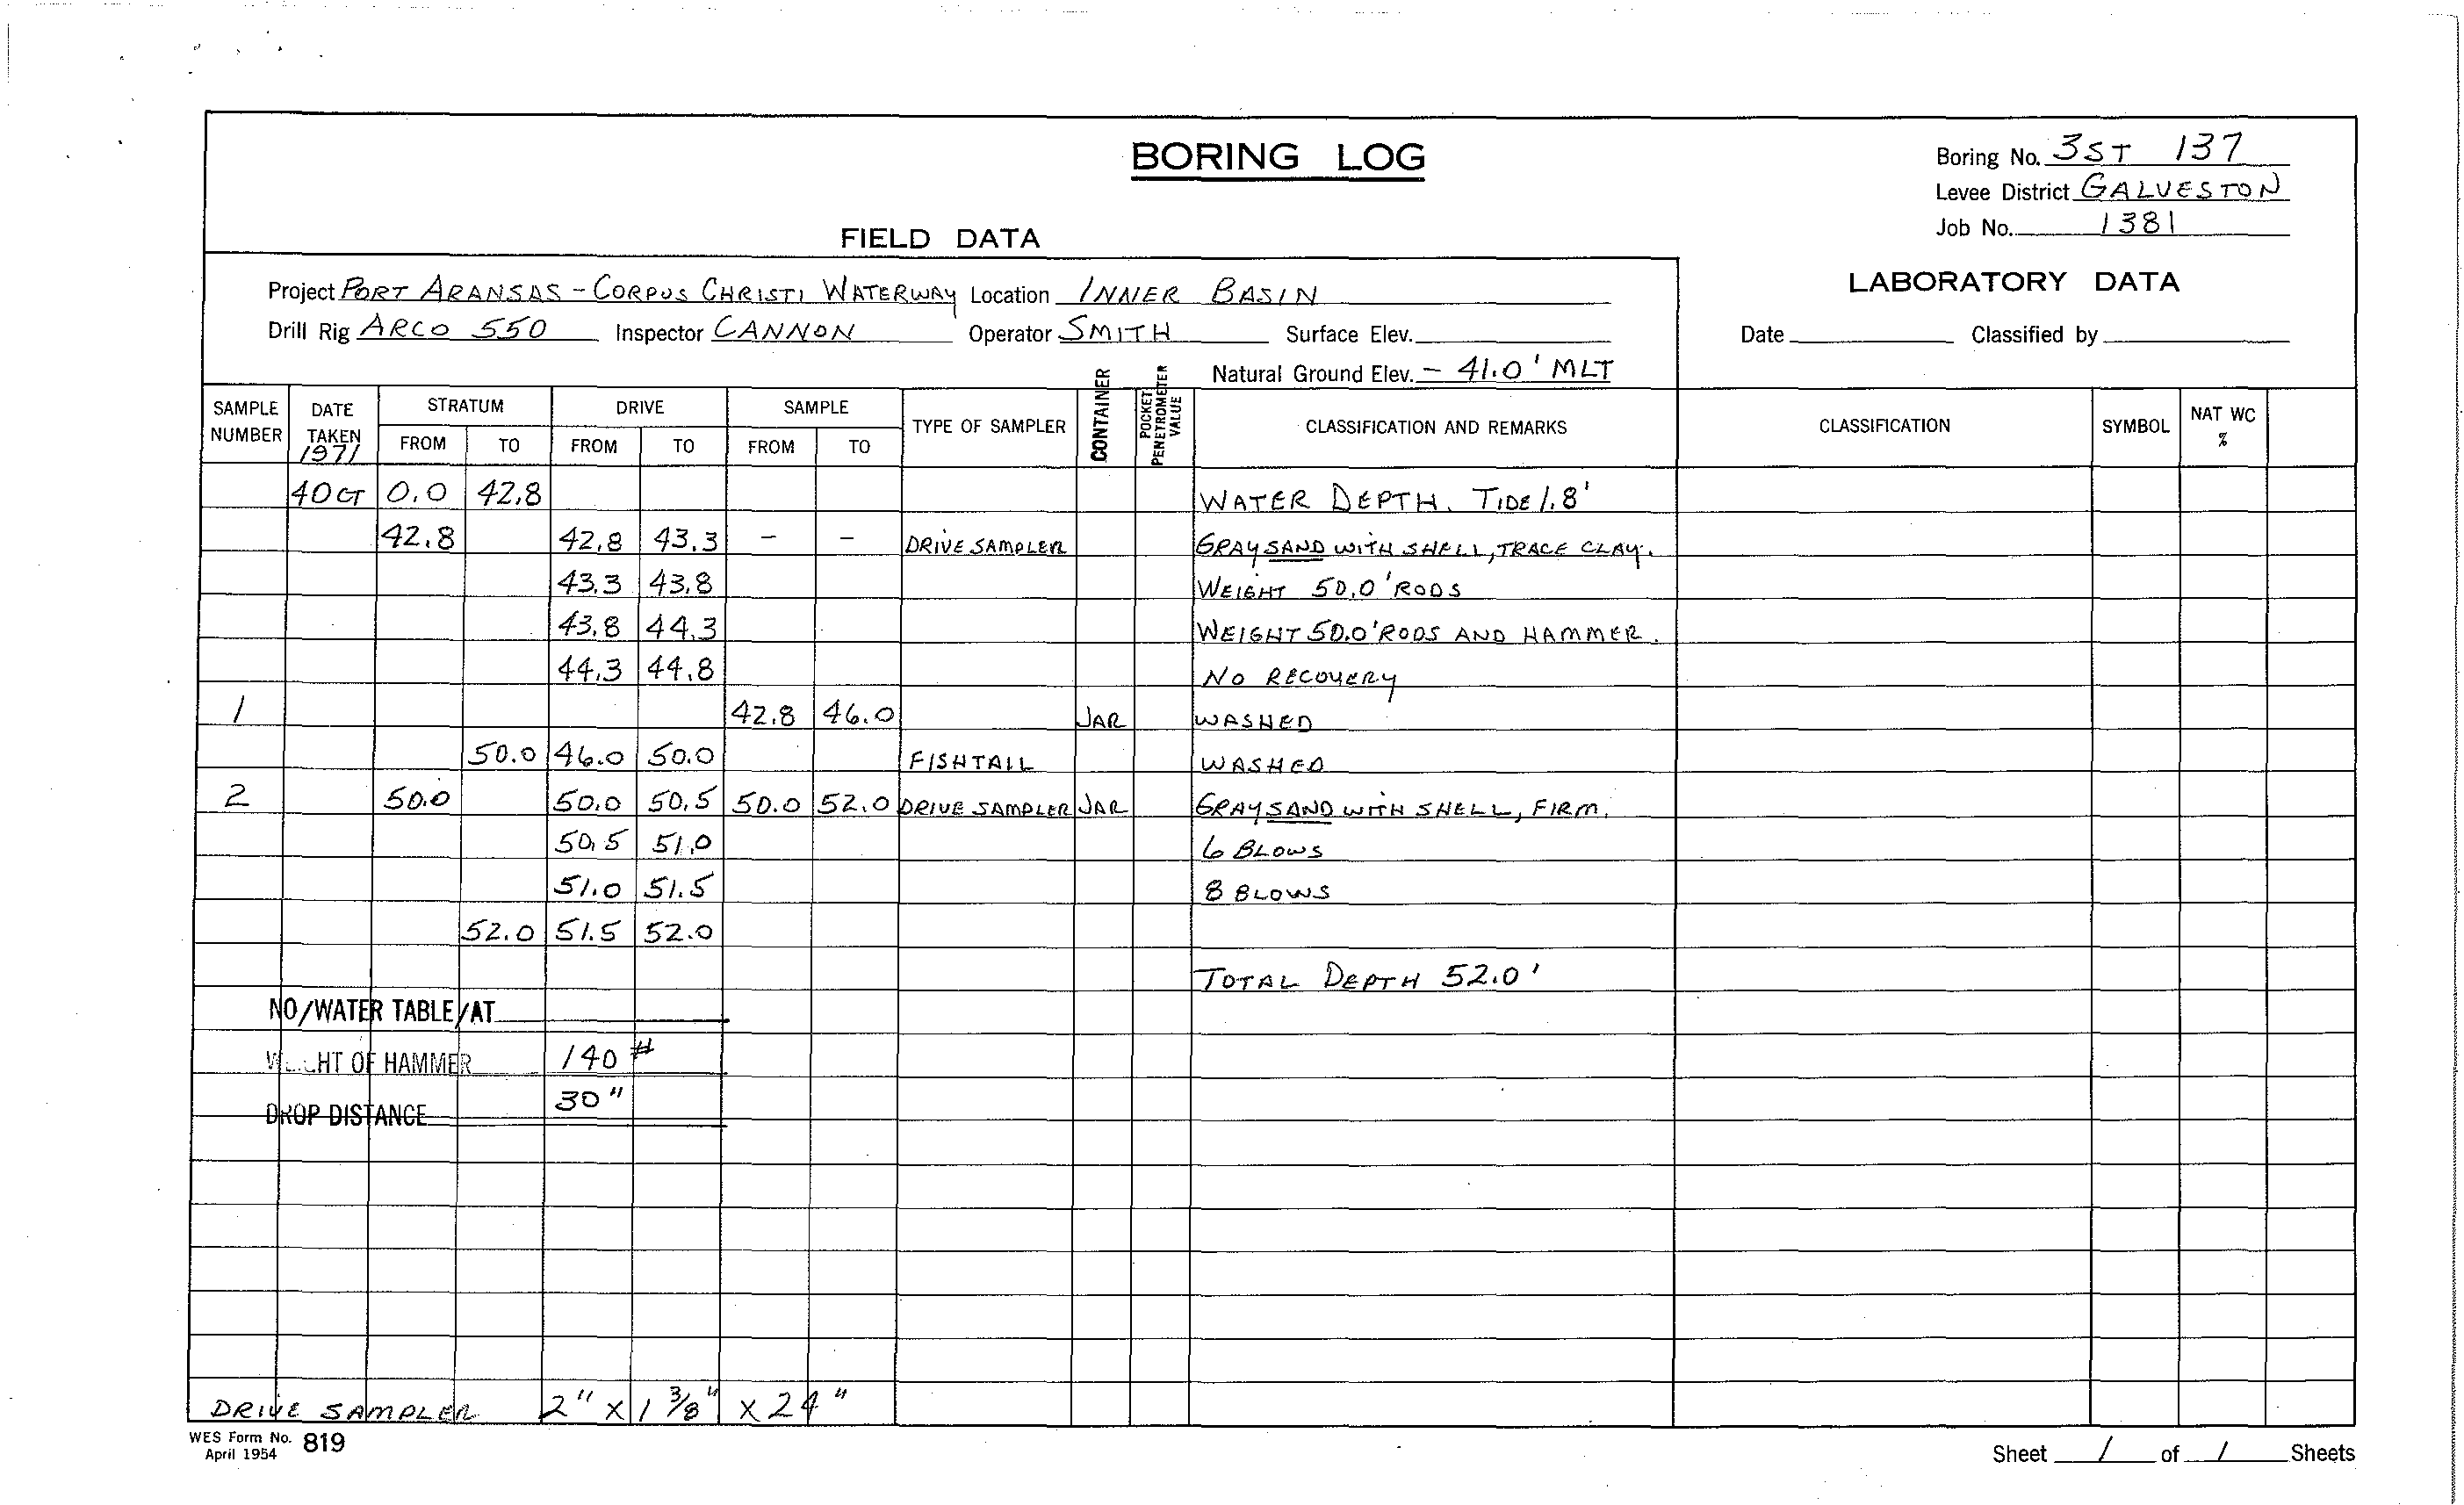 BORING LOG
Boring No. 3ST 137
Levee District GALVESTON
Job No. 1381
FIELD DATA
LABORATORY DATA
Project PORT ARANSAS - CORPUS CHRISTI WATERWAY Location INNER BASIN
Drill Rig ARCO 550 Inspector CANNON Operator SMITH Surface Elev. Date Classified by
Natural Ground Elev. - 41.0' MLT
SAMPLE NUMBER DATE TAKEN 1971 STRATUM FROM TO DRIVE FROM TO SAMPLE FROM TO TYPE OF SAMPLER CONTAINER POCKET PENETROMETER VALUE CLASSIFICATION AND REMARKS CLASSIFICATION SYMBOL NAT WC %
4 OCT 0.0 42.8 WATER DEPTH. TIDE 1.8'
42.8 42.8 43.3 - - DRIVE SAMPLER GRAY SAND WITH SHELL, TRACE CLAY.
43.3 43.8 WEIGHT 50.0' RODS
43.8 44.3 WEIGHT 50.0' RODS AND HAMMER.
44.3 44.8 NO RECOVERY
1 42.8 46.0 JAR WASHED
50.0 46.0 50.0 FISHTAIL WASHED
2 50.0 50.0 50.5 50.0 52.0 DRIVE SAMPLER JAR GRAY SAND WITH SHELL, FIRM.
50.5 51.0 6 BLOWS
51.0 51.5 8 BLOWS
52.0 51.5 52.0
TOTAL DEPTH 52.0'
NO/WATER TABLE/AT
OF HAMMER 140 #
DROP DISTANCE 30"
DRIVE SAMPLER 2" X 1 3/8" X 24"
WES Form No. 819
April 1954
Sheet 1 of 1 Sheets